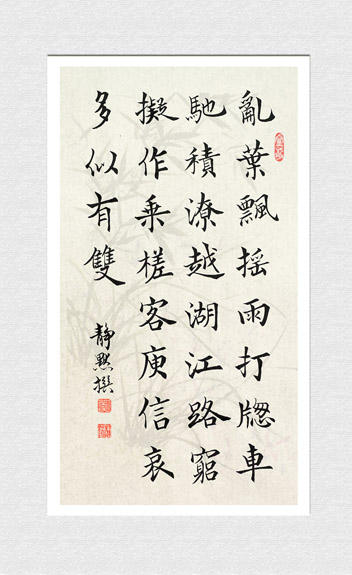 亂葉飄摇雨打窗車
馳積潦越湖江路窮
擬作乘槎客庾信哀
多似有雙
靜默撰